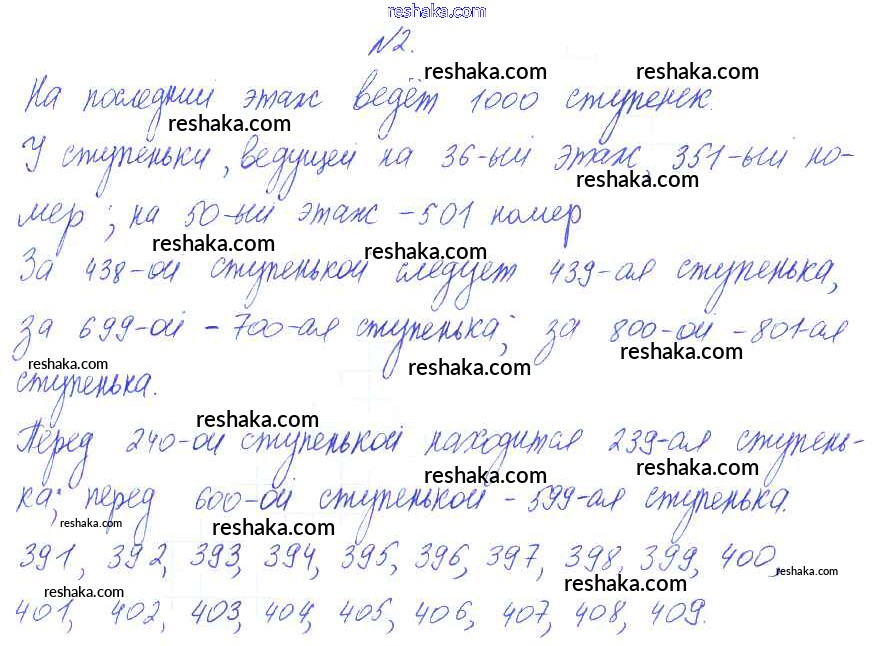 reshaka.com
№2.
reshaka.com reshaka.com
На последний этаж ведёт 1000 ступенек.
reshaka.com
У ступеньки, ведущей на 36-ый этаж 351-ый но-
reshaka.com
мер; на 50-ый этаж - 501 номер
reshaka.com reshaka.com
За 438-ой ступенькой следует 439-ая ступенька,
за 699-ой - 700-ая ступенька; за 800-ой - 801-ая
reshaka.com reshaka.com reshaka.com
ступенька.
reshaka.com
Перед 240-ой ступенькой находится 239-ая ступень-
reshaka.com reshaka.com
ка; перед 600-ой ступенькой - 599-ая ступенька.
reshaka.com reshaka.com
391, 392, 393, 394, 395, 396, 397, 398, 399, 400,
reshaka.com reshaka.com reshaka.com
401, 402, 403, 404, 405, 406, 407, 408, 409.